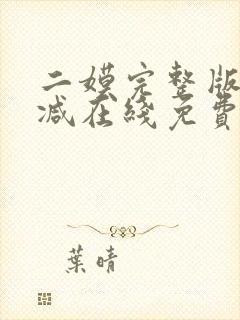 二嫫完整版
减在线免費
葉晴